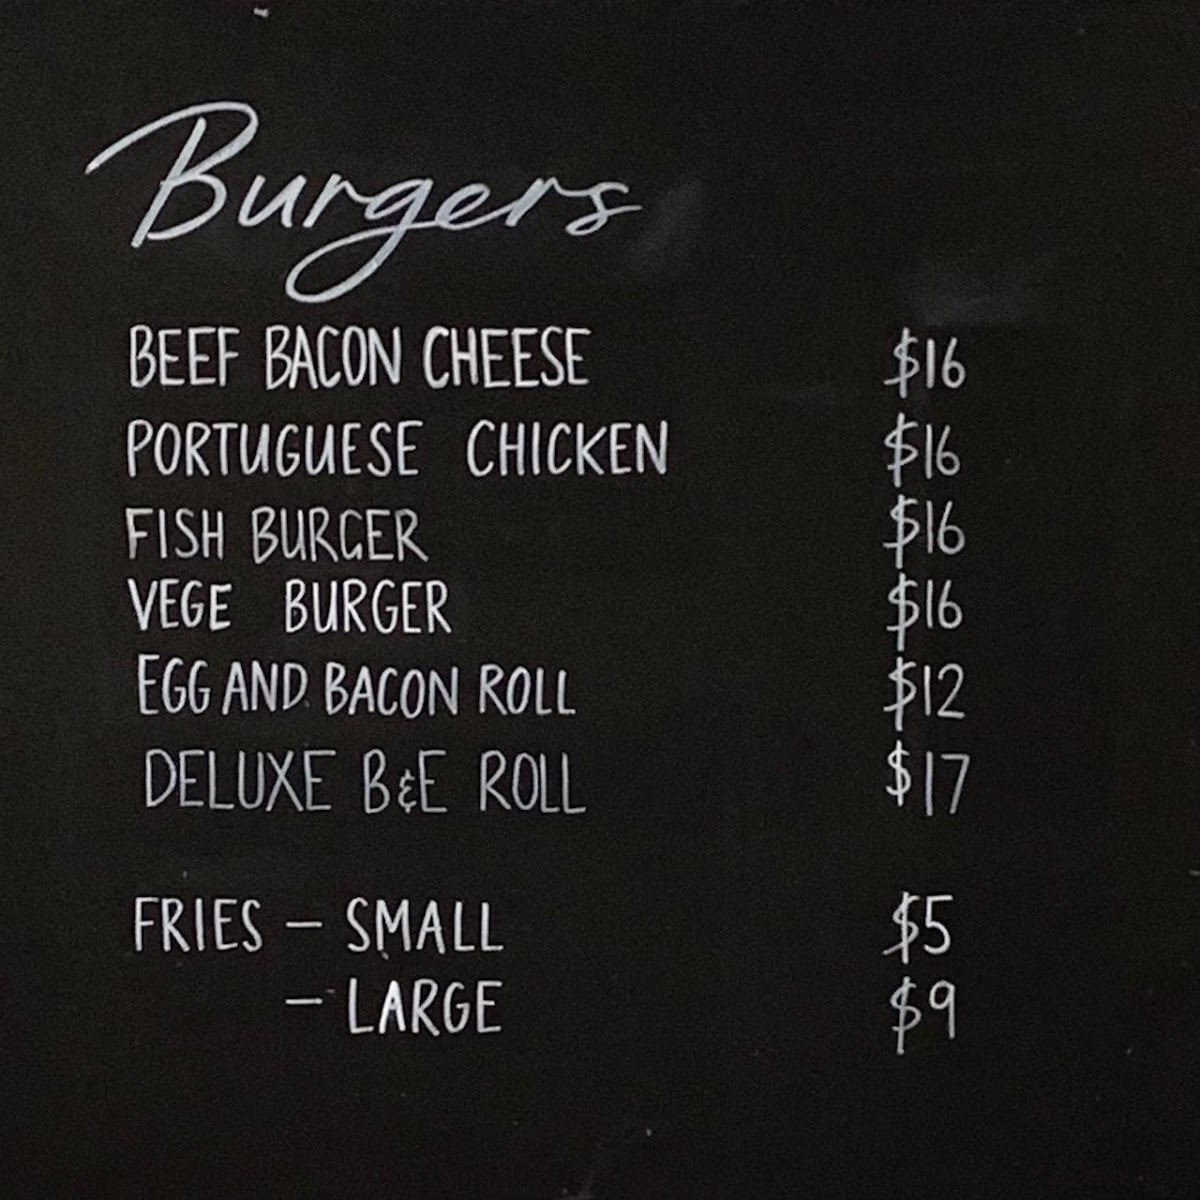 Burgers
BEEF BACON CHEESE $16
PORTUGUESE CHICKEN $16
FISH BURGER $16
VEGE BURGER $16
EGG AND BACON ROLL $12
DELUXE B&E ROLL $17
FRIES – SMALL $5
– LARGE $9